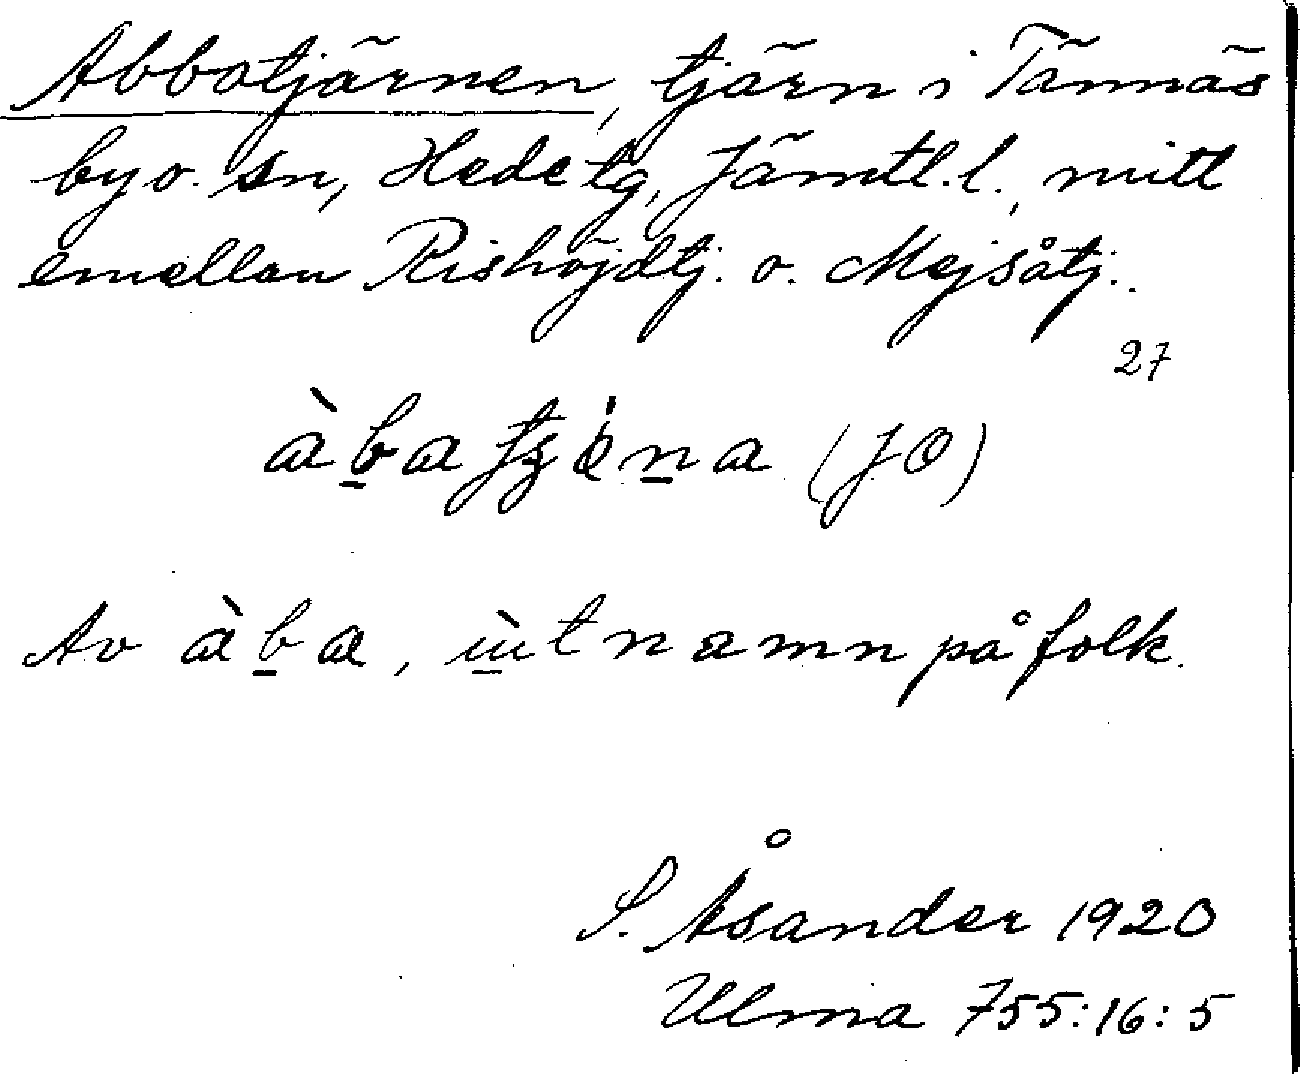 Abbatjärnen, tjärn i Tännäs
by o. sn, Hede tg, Jämtl. l., mitt
emellan Rishöjdtj. o. Mejsåtj..
27
àbatʒéna (JO)
Av àba, ùtnamn på folk.
S. Åsander 1920
Ulma 755:16:5